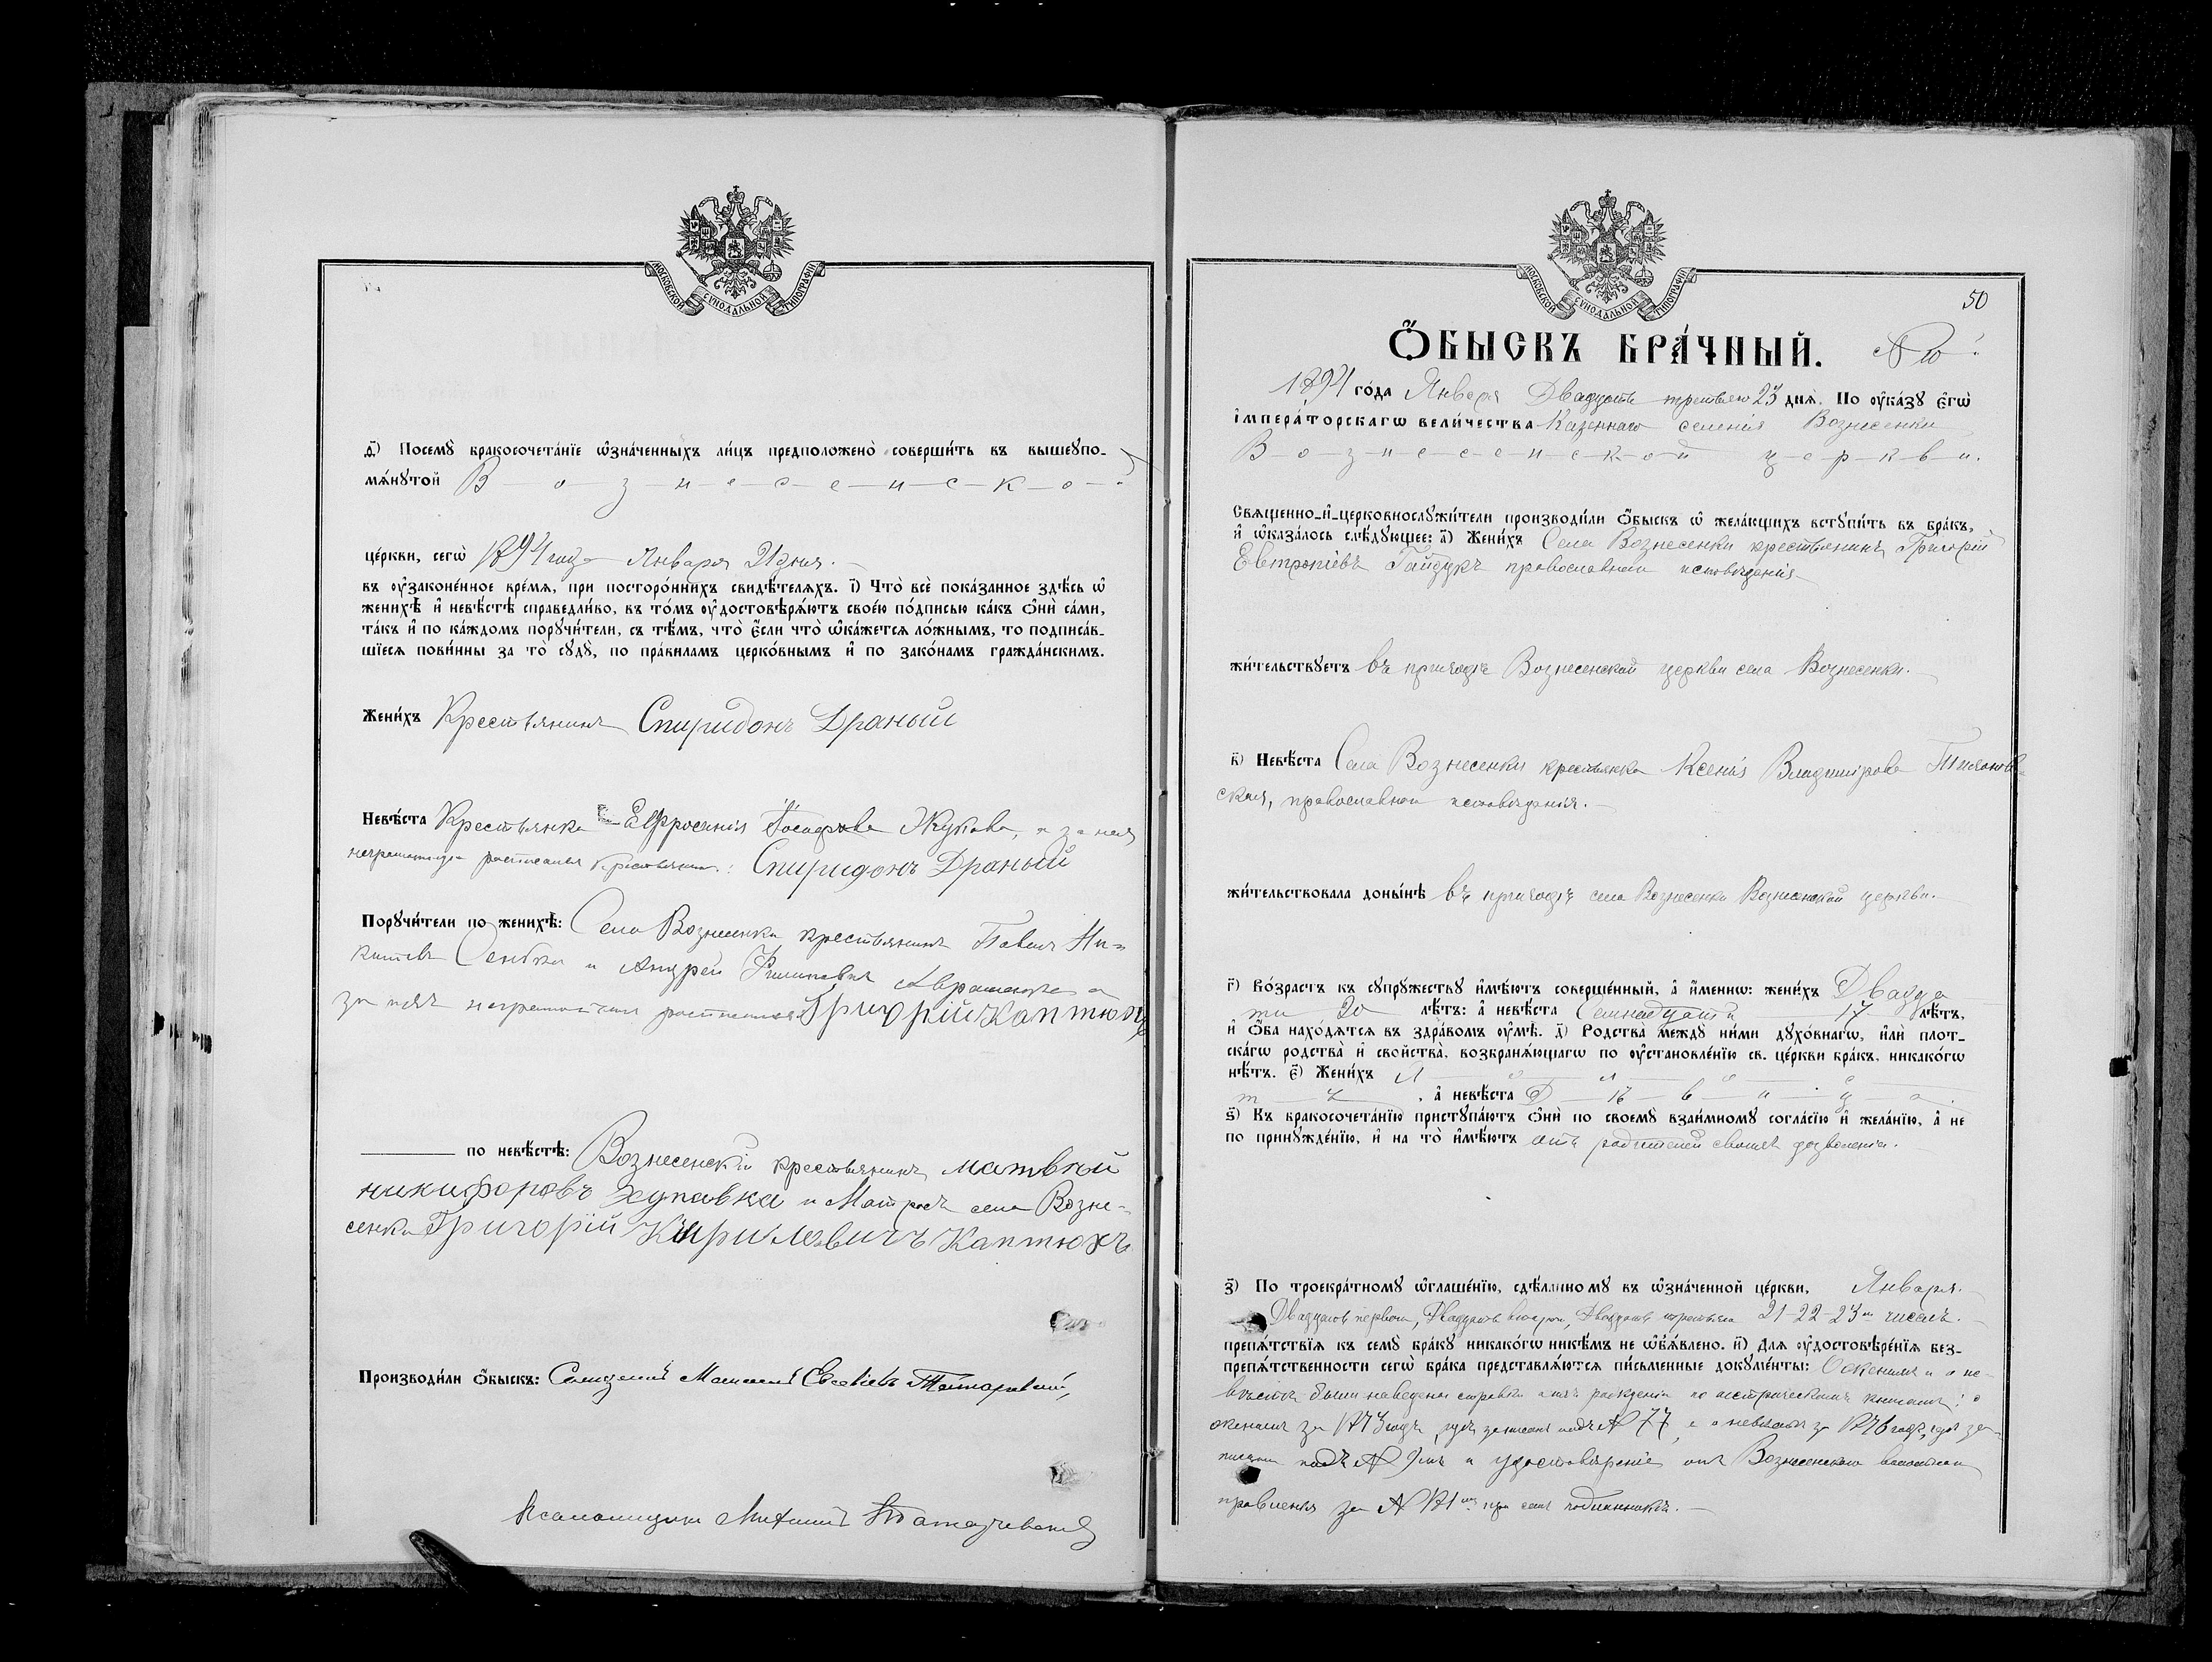 МОСКОВСКОЙ СѴНОДАЛЬНОЙ ТИПОГРАФІИ
д҃) Посемꙋ̀ бракосочета́нїе ѡ҆зна́ченныхъ ли́цъ предположено̀ соверши́ть въ вышеꙋпо-
мѧ́нꙋтой В-о-з-н-е-с-е-н-с-к-о-й
це́ркви, сегѡ̀ 1894 года Января 21 дня.
въ ᲂу҆законе́нное вре́мѧ, при посторо́ннихъ свидѣ́телѧхъ. і҃) Что̀ всѐ пока́занное здѣ́сь ѡ҆
женихѣ̀ и҆ невѣ́стѣ справедли́во, въ то́мъ ᲂу҆достовѣрѧ́ютъ свое́ю по́дписью ка́къ ѻ҆нѝ са́ми,
та́къ и҆ по ка́ждомъ порꙋчи́тели, съ тѣ́мъ, что̀ є҆́сли что̀ ѡ҆ка́жетсѧ ло́жнымъ, то подписа́в-
шїесѧ пови́нны за то̀ сꙋдꙋ̀, по пра́виламъ церко́внымъ и҆ по зако́намъ гражда́нскимъ.
Жени́хъ Крестьянинъ Спиридонъ Драный
Невѣ́ста Крестьянка Евфросинія Іосифова Жукова, а за нея
неграмотную росписался крестьянинъ: Спиридонъ Драный
Порꙋчи́тели по женихѣ̀: Села Вознесенки крестьянинъ Павелъ Ни-
китинъ и Андрей Филиповъ а
за нихъ неграмотныхъ росписался Григорій Каптюхъ
по невѣ́стѣ: Вознесенскій крестьянинъ Матвѣй
Никифоровъ Хупавка и Матросъ села Возне-
сенки Григорій Кириловичъ Каптюхъ
Производи́ли ѻ҆́быскъ: Священникъ Евсевіевъ
Псаломщикъ
МОСКОВСКОЙ СѴНОДАЛЬНОЙ ТИПОГРАФІИ
50
Ѻ҆́БЫСКЪ БРА́ЧНЫЙ. № 10
1894 го́да Января Двадцать третьяго 23 днѧ̀. По ᲂу҆ка́зꙋ є҆гѡ̀
і҆мпера́торскагѡ вели́чества Казеннаго селенія Вознесенки
В-о-з-н-е-с-е-н-с-к-о-й ц-е-р-к-в-и.
Свѧщенно-и҆-церковнослꙋжи́тели производи́ли ѻ҆́быскъ ѡ҆ жела́ющихъ встꙋпи́ть въ бра́къ,
и҆ ѡ҆каза́лось слѣ́дꙋющее: а҃) Жени́хъ Села Вознесенки крестьянинъ Григорій
Евтропіевъ Гайдукъ православнаго исповѣданія
жи́тельствꙋетъ въ приходѣ Вознесенской церкви села Вознесенки.
в҃) Невѣ́ста Села Вознесенки крестьянка Ксенія Владимірова
ская, православнаго исповѣданія.
жи́тельствовала доны́нѣ въ приходѣ села Вознесенки Вознесенской церкви.
г҃) Во́зрастъ къ сꙋпрꙋ́жествꙋ и҆мѣ́ютъ соверше́нный, а҆ и҆́менно: жени́хъ Двадца
ти 20 лѣ́тъ: а҆ невѣ́ста Семнадцати 17 лѣ́тъ,
и҆ ѻ҆́ба нахо́дѧтсѧ въ здра́вомъ ᲂу҆мѣ̀. д҃) Родства̀ междꙋ̀ ни́ми дꙋхо́внагѡ, и҆лѝ плот-
ска́гѡ родства̀ и҆ свойства̀, возбранѧ́ющагѡ по ᲂу҆становле́нїю св. це́ркви бра́къ, никако́гѡ
нѣ́тъ. є҃) Жени́хъ х-о-л-о-с-
т-ъ, а҆ невѣ́ста Д-ѣ-в-и-ц-а.
ѕ҃) Къ бракосочета́нїю пристꙋпа́ютъ ѻ҆нѝ по своемꙋ̀ взаи́мномꙋ согла́сїю и҆ жела́нїю, а҆ не
по принꙋжде́нїю, и҆ на то̀ и҆мѣ́ютъ отъ родителей своихъ дозволеніе.
з҃) По троекра́тномꙋ ѡ҆глаше́нїю, сдѣ́ланномꙋ въ ѡ҆зна́ченной це́ркви, Января
Двадцать перваго, Двадцать втораго, Двадцать третьяго 21-22-23го чиселъ.
препѧ́тствїѧ къ семꙋ̀ бра́кꙋ никако́гѡ никѣ́мъ не ѡ҆б̾ѧ́влено. и҃) Для ᲂу҆достовѣре́нїѧ без-
препѧ́тственности сегѡ̀ бра́ка представлѧ́ютсѧ пи́сьменные докꙋме́нты: О женихѣ и о не-
вѣстѣ были наведены справки рожденіи по метрическимъ книгамъ: о
женихѣ за 1873 годъ, гдѣ записанъ подъ № 77, а о невѣстѣ за 1876 годъ, гдѣ за-
писана подъ № и удостовѣреніе отъ Вознесенскаго волостнаго
правленія за № при семъ